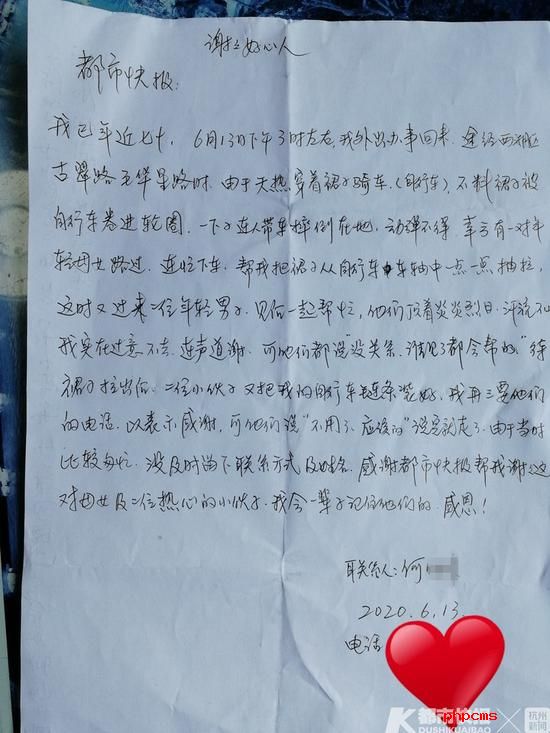 谢谢好心人
都市快报:
我已年近七十,6月13日下午3时左右,我外出办事回来,途经西湖区
古翠路 华星路时,由于天热,穿着裙子骑车,(自行车)不料裙子被
自行车卷进轮圈,一下子连人带车摔倒在地,动弹不得,幸亏有一对年
轻母女路过,连忙下车,帮我把裙子从自行车车轴中一点一点抽拉,
这时又过来二位年轻男子,见后一起帮忙,他们顶着炎炎烈日,汗流不
我实在过意不去,连声道谢,可他们都说"没关系,谁见了都会帮的"待
裙子拉出后,二位小伙子又把我的自行车链条装好,我再三要他们
的电话,以表示感谢,可他们说"不用了,应该的"说完就走了,由于当时
比较匆忙,没及时留下联系方式及姓名,感谢都市快报帮我谢谢这
对母女及二位热心的小伙子,我会一辈子记住他们的,感恩!
联系人:何
2020.6.13.
电话
都市快报
DUSHIKUAIBAO
杭州
新闻
phpcms